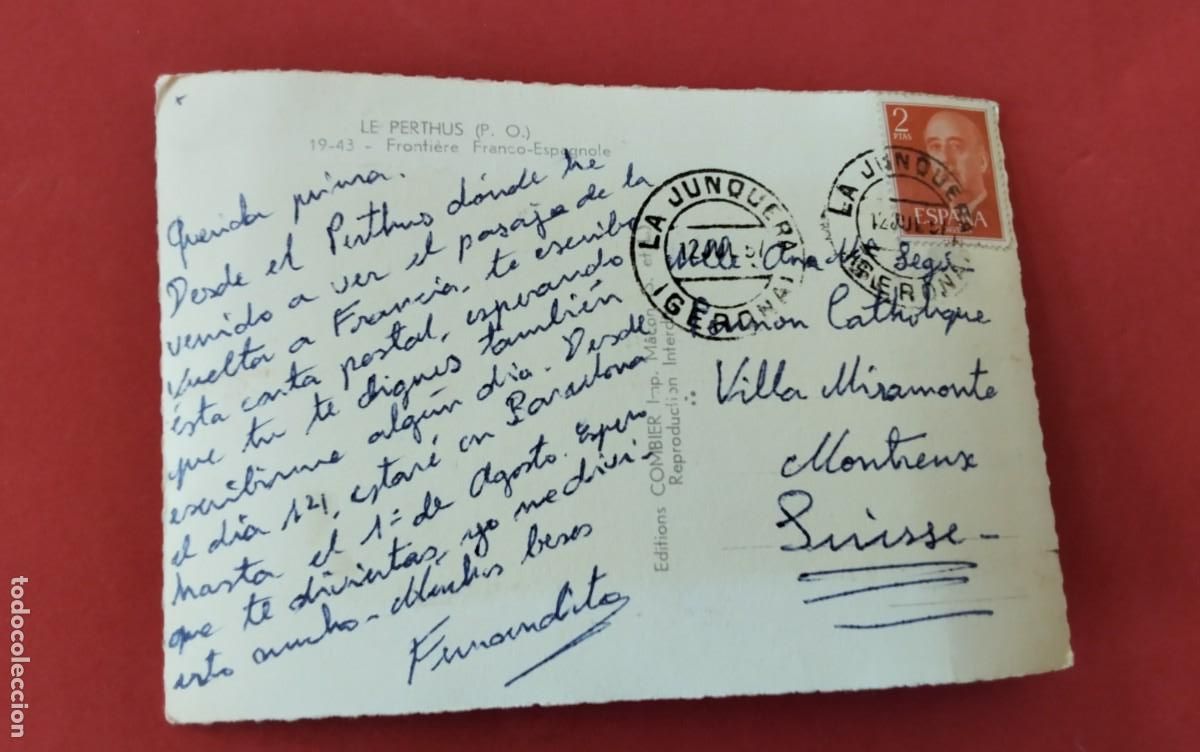 LE PERTHUS (P. O.)
19-43 - Frontière Franco-Espagnole
Querida prima.
Desde el Perthus dónde he
venido a ver el pasaje de la
vuelta a Francia, te escribo
ésta carta postal, esperando
que tu te dignes también
escribirme algún día. Desde
el día 14, estaré en Barcelona
hasta el 1º de Agosto. Espero
que te diviertas, yo me divi-
erto mucho - Muchos besos
Fernandito
2
PTAS
ESPAÑA
LA JUNQUERA
12 JUL 57
(GERONA)
LA JUNQUERA
12 JUL 57
GERONA
Editions COMBIER Imp. Mâcon
Reproduction Interd
Melle Ana Mª Segú
Catholique
Villa Miramonte
Montreux
Suisse -
todocoleccion